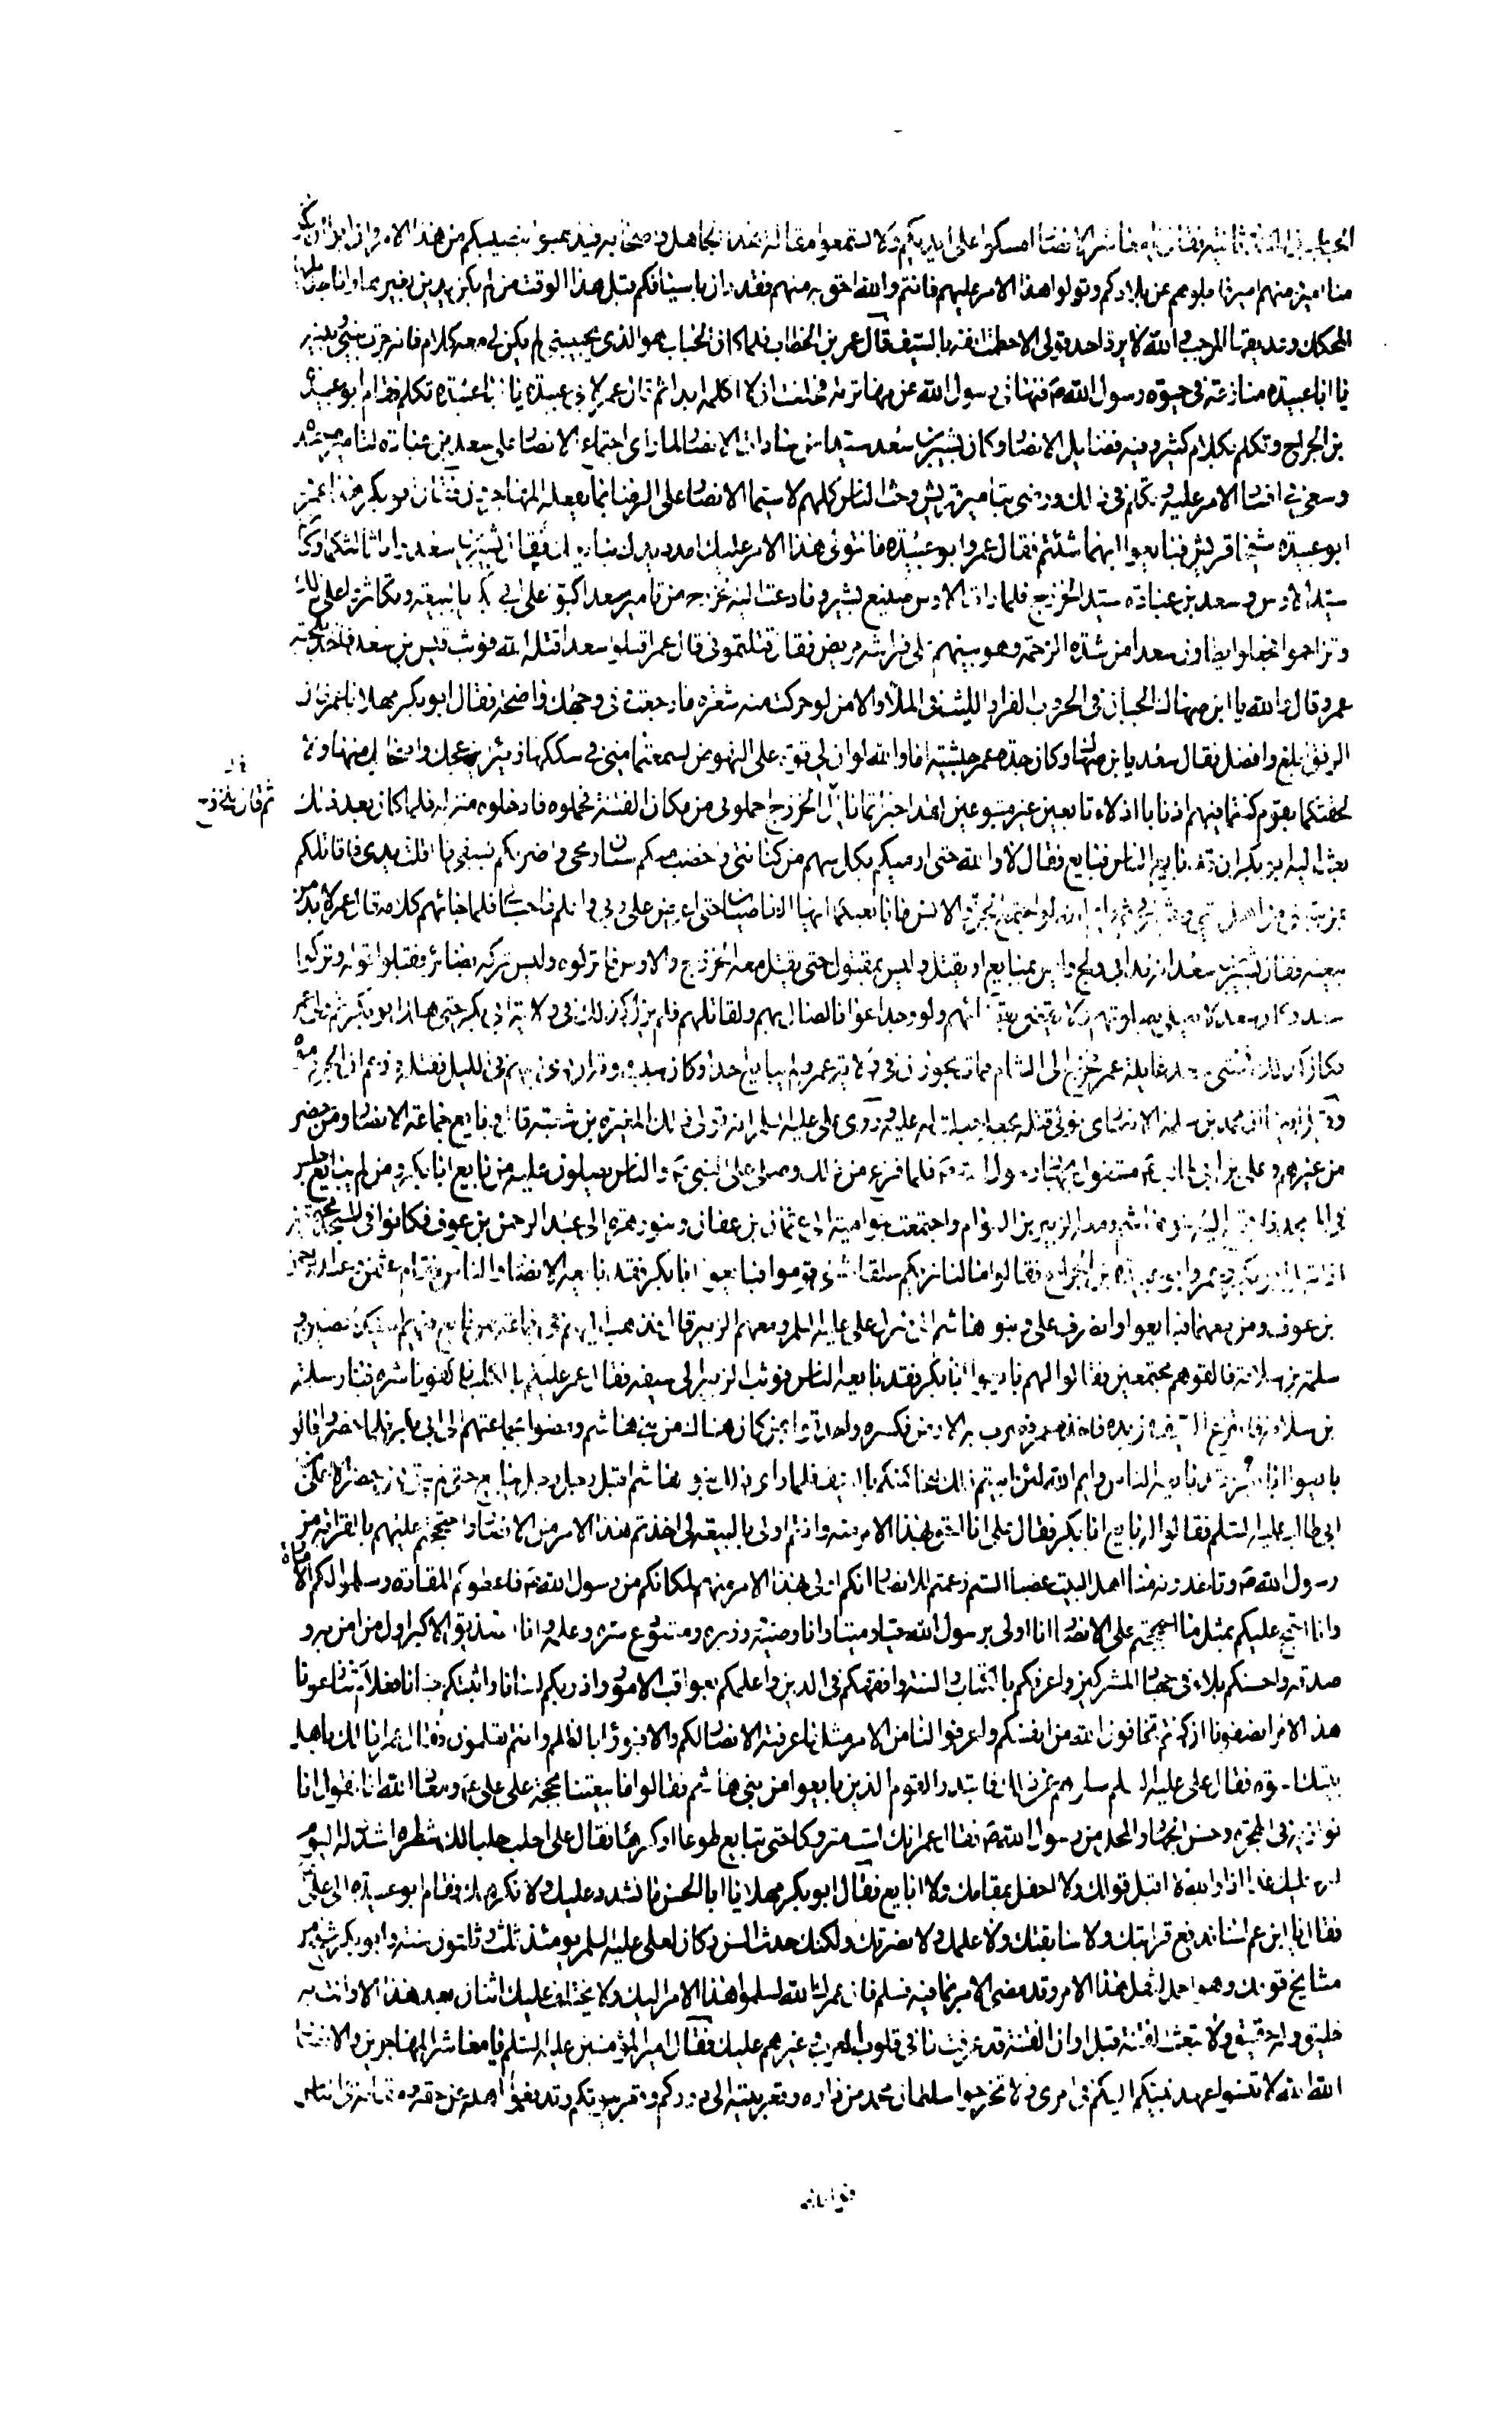 الحباب بن المنذر ثانية فقال يا معاشر الانصار امسكوا على ايديكم ولا تسمعوا مقالة هذا الجاهل واصحابه فيذهبوا بنصيبكم من هذا الامر وان ابوا ان يكون
منا امير ومنهم امير فاجلوهم عن بلادكم وتولوا هذا الامر عليهم فانتم والله احق به منهم فقد دان باسيافكم قبل هذا الوقت من لم يكن يدين بغيرها وانا جذيلها
المحكك وعذيقها المرجب والله لا يرد احد قولي الا حطمت انفه بالسيف قال عمر بن الخطاب فلما كان الحباب هو الذي يجيبني لم يكن لي معه كلام فانه جرت بيني وبينه
منازعة في حيوة رسول الله ص فنهاني رسول الله عن مهاترته فحلفت ان لا اكلمه ابدا ثم قال عمر لابي عبيدة يا ابا عبيدة تكلم فقام ابو عبيدة
بن الجراح وتكلم بكلام كثير وذكر فيه فضايل الانصار وكان بشير بن سعد سيدا من سادات الانصار لما راى اجتماع الانصار على سعد بن عبادة لتاميره حسده
وسعى في افساد الامر عليه وتكلم في ذلك ورضى بتامير قريش وحث الناس كلهم لا سيما الانصار على الرضا بما يفعله المهاجرون فقال ابو بكر هذا عمر
ابو عبيدة شيخا قريش فبايعوا ايهما شئتم فقال عمر وابو عبيدة ما نتولى هذا الامر عليك امدد يدك نبايعك فقال بشير بن سعد وانا ثالثكما وكان
سيد الاوس وسعد بن عبادة سيد الخزرج فلما رات الاوس صنيع بشير وما دعت اليه الخزرج من تامير سعد اكبوا على ابي بكر بالبيعة وتكاثروا على ذلك
وتزاحموا فجعلوا يطاون سعدا من شدة الزحمة وهو بينهم على فراشه مريض فقال قتلتموني قال عمر اقتلوا سعدا قتله الله فوثب قيس بن سعد فاخذ بلحية
عمر وقال والله يا ابن صهاك الجبان في الحروب الفرار الليث في الملأ والامن لو حركت منه شعرة ما رجعت وفي وجهك واضحة فقال ابو بكر مهلا يا عمر فان
الرفق ابلغ وافضل فقال سعد يا بن صهاك وكان جده عمر حبشية اما والله لو ان لي قوة على النهوض لسمعتما مني في سككها زئيرا يزعجك واصحابك منها ولا
لحقتكما بقوم كنتما فيهم اذنابا اذلاء تابعين غير متبوعين لقد اجترأتما يا آل الخزرج احملوني من مكان الفتنة فحملوه فادخلوه منزله فلما كان بعد ذلك
ثم قال للخزرج
بعث اليه ابو بكر ان قد بايع الناس فبايع فقال لا والله حتى ارميكم بكل سهم من كنانتي واخضب منكم سنان رمحي واضربكم بسيفي ما اقلت يدي فاقاتلكم
بمن تبعني من اهل بيتي وعشيرتي ثم وايم الله لو اجتمع الجن والانس ما بايعتكما ايها الغاصبان حتى اعرض على ربي واعلم ما حسابي فلما جائهم كلامه قال عمر لا بد من
بيعته فقال بشير بن سعد انه قد ابى ولج وليس بمبايع او يقتل وليس بمقتول حتى يقتل معه الخزرج والاوس فاتركوه وليس تركه بضائر فقبلوا قوله وتركوا
سعدا وكان سعد لا يصلي بصلوتهم ولا يقضي بقضائهم ولو وجد اعوانا لصال بهم ولقاتلهم فلم يزل كذلك في ولاية ابي بكر حتى هلك ابو بكر ثم ولى عمر
فكان كذلك فخشى سعد غايلة عمر فخرج الى الشام فمات بحوران في ولاية عمر ولم يبايع احدا وكان سبب موته ان رمى بسهم في الليل فقتله وزعم ان الجن رموه
وقيل ايضا ان محمد بن سلمة الانصاري تولى قتله بجعل جعلت له عليه وروى على عليه السلم انه تولى ذلك المغيرة بن شعبة قال وبايع جماعة الانصار ومن حضر
من غيرهم وعلى بن ابي طالب ع مشغول بجهاز رسول الله ص فلما فرغ من ذلك وصلى على النبي ص والناس يصلون عليه من بايع ابا بكر ومن لم يبايع جلس
في المسجد فاجتمع اليه بنو هاشم ومعه الزبير بن العوام واجتمعت بنو امية الى عثمان بن عفان وبنو زهرة الى عبد الرحمن بن عوف فكانوا في المسجد مجتمعين
اذ اقبل ابو بكر وعمر وابو عبيدة بن الجراح فقالوا ما لنا نريكم حلقا شتى قوموا فبايعوا ابا بكر فقد بايعه الانصار والناس فقام عثمن وعبد الرحمن
بن عوف ومن معهما فبايعوا وانصرف على وبنو هاشم الى منزل على عليه السلم ومعهم الزبير قال فذهب اليهم عمر في جماعة ممن بايع فيهم اسيد بن حضير و
سلمة بن سلامة فالفوهم مجتمعين فقالوا لهم بايعوا ابا بكر فقد بايعه الناس فوثب الزبير الى سيفه فقال عمر عليكم بالكلب فاكفونا شره فبادر سلمة
بن سلامة فانتزع السيف من يده فاخذه عمر فضرب به الارض فكسره واحدقوا بمن كان هناك من بني هاشم ومضوا بجماعتهم الى ابي بكر فلما حضروا قالوا
بايعوا ابا بكر فقد بايعه الناس وايم الله لئن ابيتم ذلك لنحاكمنكم بالسيف فلما راى ذلك بنو هاشم اقبل رجل رجل فجعل يبايع حتى لم يبق ممن حضر الا على بن
ابي طالب عليه السلم فقالوا له بايع ابا بكر فقال على انا احق بهذا الامر منه وانتم اولى بالبيعة لي اخذتم هذا الامر من الانصار واحتججتم عليهم بالقرابة من
رسول الله ص وتاخذونه منا اهل البيت غصبا الستم زعمتم للانصار انكم اولى بهذا الامر منهم لمكانكم من رسول الله ص فاعطوكم المقادة وسلموا لكم الامارة
وانا احتج عليكم بمثل ما احتججتم على الانصار انا اولى برسول الله حيا وميتا وانا وصيه ووزيره ومستودع سره وعلمه وانا الصديق الاكبر اول من امن به و
صدقه واحسنكم بلاء في جهاد المشركين واعرفكم بالكتاب والسنة وافقهكم في الدين واعلمكم بعواقب الامور واذربكم لسانا واثبتكم جنانا فعلام تنازعونا
هذا الامر انصفونا ان كنتم تخافون الله من انفسكم واعرفوا لنا من الامر مثل ما عرفته الانصار لكم والا فبوؤا بالظلم وانتم تعلمون فقال عمر اما لك باهل
بيتك اسوة فقال على عليه السلم سلوهم عن ذلك فابتدر القوم الذين بايعوا من بني هاشم فقالوا ما بيعتنا بحجة على على ع ومعاذ الله ان نقول انا
نوازيه في الهجرة وحسن الجهاد والمحل من رسول الله ص فقال عمر انك لست متروكا حتى تبايع طوعا او كرها فقال على احلب حلبا لك شطره اشدد له اليوم
ليرد عليك غدا اذا والله لا اقبل قولك ولا احفل بمقامك ولا ابايع فقال ابو بكر مهلا يا ابا الحسن ما نشدد عليك ولا نكرهك فقام ابو عبيدة الى على
فقال يا ابن عم لسنا ندفع قرابتك ولا سابقتك ولا علمك ولا نصرتك ولكنك حدث السن وكان لعلى عليه السلم يومئذ ثلث وثلثون سنة وابو بكر شيخ من
مشايخ قومك وهو احمل لثقل هذا الامر وقد مضى الامر بما فيه فسلم فان عمرك الله لسلموا هذا الامر اليك ولا يختلف عليك اثنان بعد هذا الا وانت به
خليق وله حقيق ولا تبعث الفتنة قبل اوان الفتنة قد عرفت ما في قلوب العرب وغيرهم عليك فقال امير المؤمنين عليه السلم يا معاشر المهاجرين والانصار
الله الله لا تنسوا عهد نبيكم اليكم في امرى ولا تخرجوا سلطان محمد من داره وقعر بيته الى دوركم وقعر بيوتكم وتدفعوا اهله عن حقه ومقامه في الناس